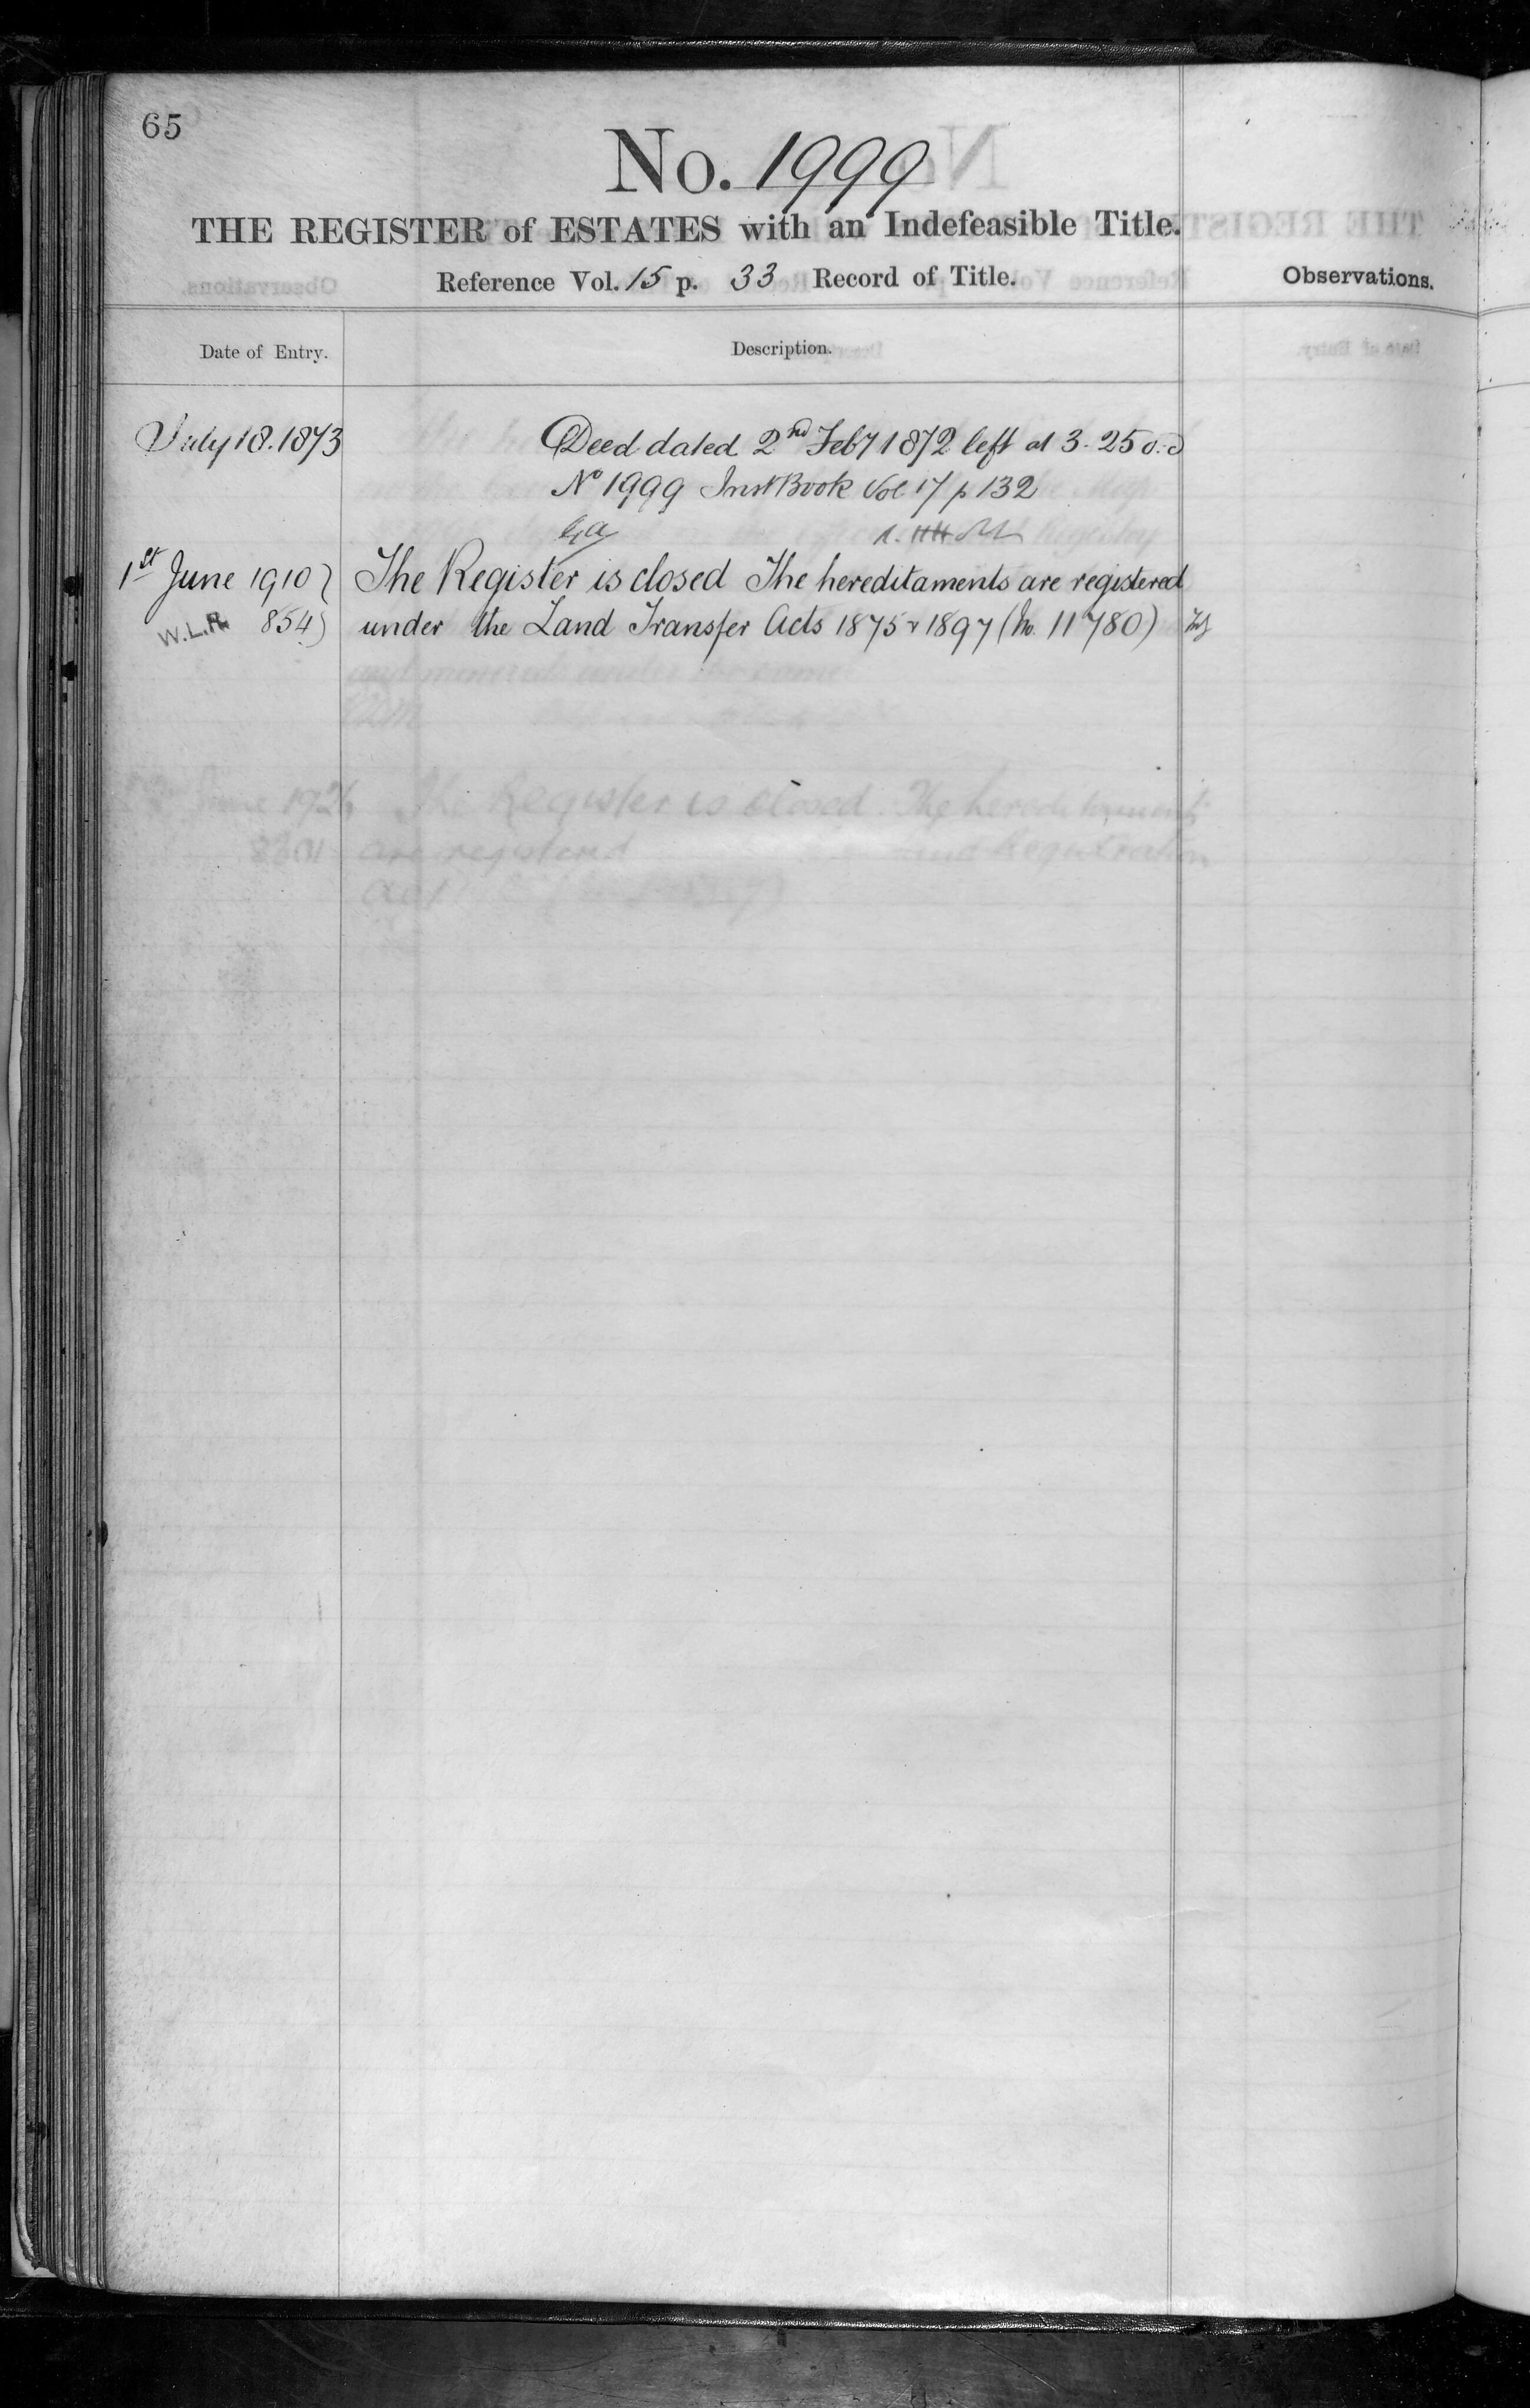 65
No. 1999
THE REGISTER of ESTATES with an Indefeasible Title.
Reference Vol. 15 p. 33 Record of Title.
Observations.
Date of Entry.
Description.
July 18. 1873
Deed dated 2nd Feby 1872 left at 3.25
No 1999 Inst Book Vol 17 p 132
1st June 1910
The Register is closed The hereditaments are registered
W.L.R. 854
under the Land Transfer Acts 1875 & 1897 (No. 11780)
The Register is closed. The hereditaments
are registered